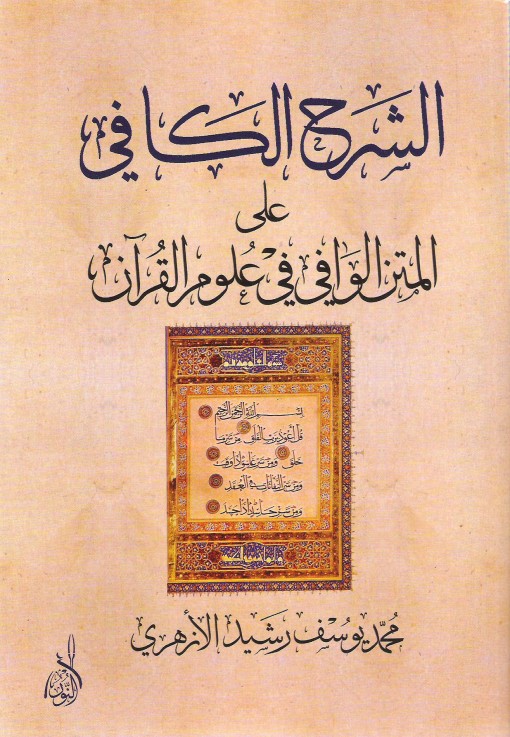 الشرح الكافي
على
المتن الوافي في علوم القرآن
بسم الله الرحمن الرحيم
قل أعوذ برب الفلق من شر ما
خلق ومن شر غاسق إذا وقب
ومن شر النفاثات في العقد
ومن شر حاسد إذا حسد
محمد يوسف رشيد الأزهري
النور